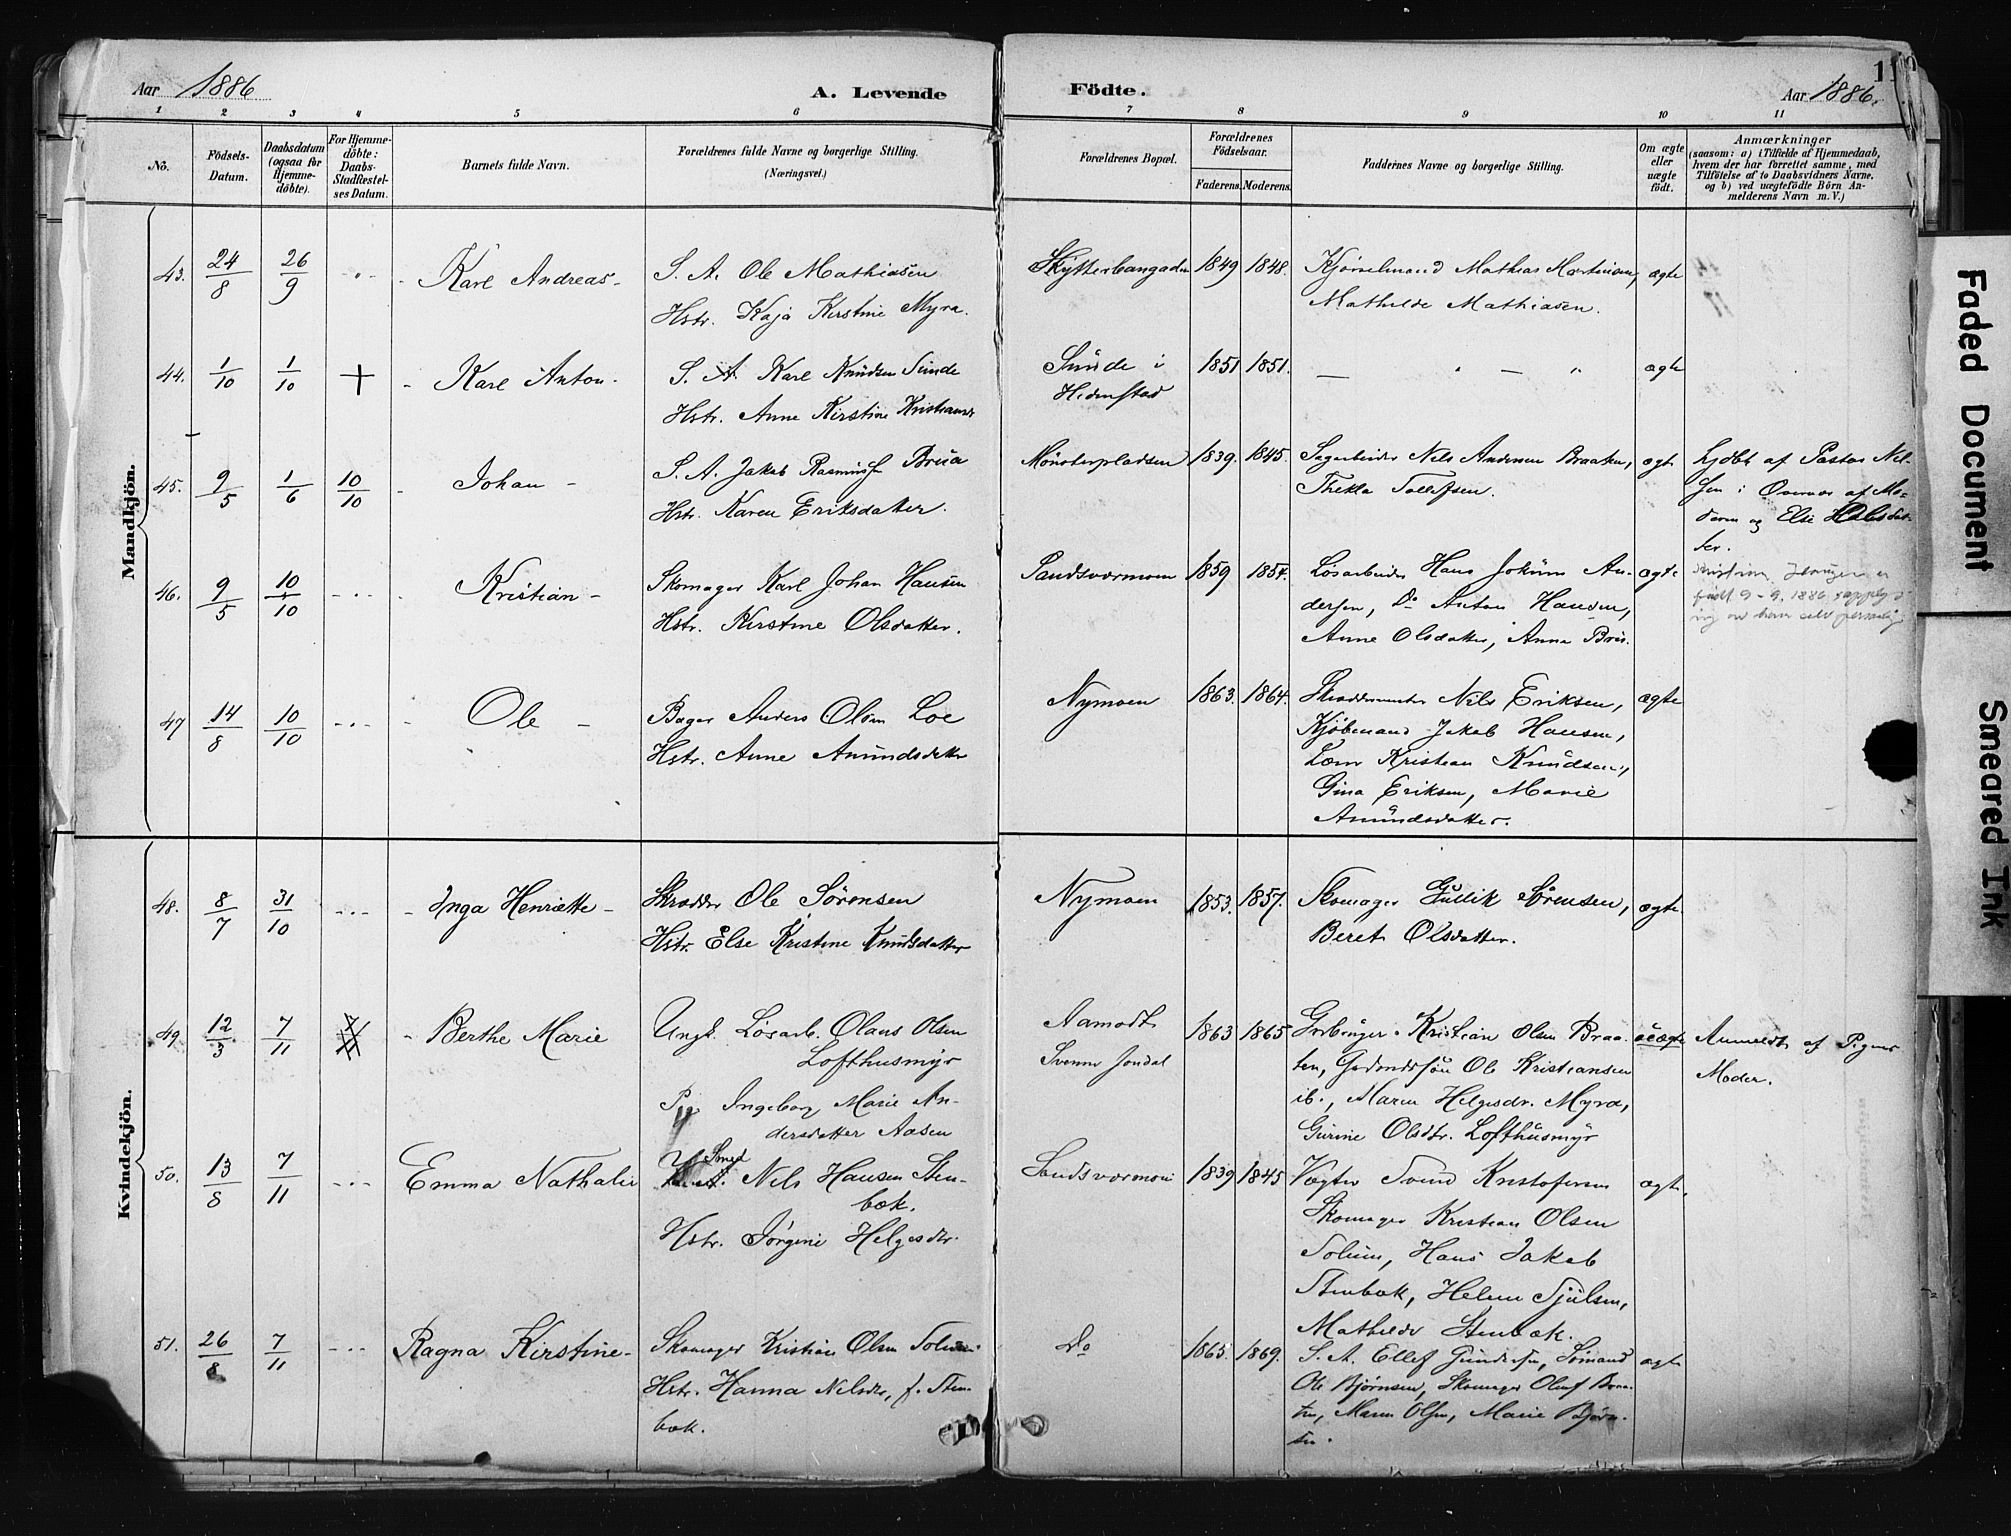 Aar 1886
A. Levende
Födte.
Aar 1886.
11
1 2 3 4 5 6 7 8 9 10 11
No.
Födsels-
Datum.
Daabsdatum
(ogsaa for
Hjemme-
döbte).
For Hjemme-
döbte:
Daabs-
Stadfæstel-
ses Datum.
Barnets fulde Navn.
Forældrenes fulde Navne og borgerlige Stilling.
(Næringsvei.)
Forældrenes Bopæl.
Forældrenes
Födselsaar.
Faderens. Moderens.
Faddernes Navne og borgerlige Stilling.
Om ægte
eller
uægte
födt.
Anmærkninger
(saasom: a) i Tilfælde af Hjemmedaab,
hvem der har forrettet samme, med
Tilföielse af to Daabsvidners Navne,
og b) ved uægtefödte Börn An-
melderens Navn m. V.)
Mandkjön.
43. 24/8 26/9 Karl Andreas S. A. Ole Mathiasen
Hstr. Kaja Kirstine Myra.
1849 1848. Kjörselmand Mathias Martinsen, ægte
Mathilde Mathiasen.
44. 1/10 1/10 + Karl Anton S. A. Karl Knudsen Sunde
Hstr. Anne Kirstine
Sunde i
Hedenstad
1851 1851. ægte
45. 9/5 1/6 10/10 Johan S. A. Jakob Brua
Hstr. Karen Eriksdatter.
Mönsterpladsen 1839. 1845. Nels Andersen Braaten, ægte
Thekla Tollefsen.
hjdbt af Pastor Nil-
sen i af Mo-
deren og Else
ter.
46. 9/5 10/10 Kristian Skomager Karl Johan Hansen
Hstr. Kirstine Olsdatter.
Sandsværmoen 1859 1854. Lösarbeider Hans Jokum An- ægte
dersen, Do Anton Hansen,
Anne Olsdatter, Anna
födt 9-9. 1886
47 14/8 10/10 Ole Bager Anders Olsen Loe
Hstr. Anne Amundsdatter
Nymoen 1863. 1864. Nils Eriksen, ægte
Kjöbmand Jakob Hansen,
Kristian Knudsen,
Gina Eriksen, Marie
Amundsdatter.
Kvindekjön.
48. 8/7 31/10 Inga Henriette Skrædder Ole Sörensen
Hstr. Else Kristine Knudsdatter
Nymoen 1853. 1857. Skomager Gullik Sörensen, ægte.
Beret Olsdatter.
49 12/3 7/11 Berthe Marie Ungk. Lösarb. Olaus Olsen
Lofthusmyr
Pig. Ingeborg Marie An-
dersdatter Aasen
Aamodt
Svenne Jondal
1863 1865 Kristian Olsen Braa- uægte
ten, Ole Kristiansen
ib., Maren Helgesdr. Myra,
Gurine Olsdtr. Lofthusmyr
Anmeldt af Pigens
Moder.
50. 13/8 7/11 Emma Nathalie Smed Nils Hansen Sten-
bæk.
Hstr. Jörgine Helgesdtr.
Sandsværmoen 1839 1845 Vægter Svend Kristofersen ægte.
Skomager Kristian Olsen
Solum, Hans Jakob
Stenbæk, Helene Sjulsen,
Mathilde Stenbæk.
51. 26/8 7/11 Ragna Kirstine Skomager Kristian Olsen Solum
Hstr. Hanna Nilsdtr, f. Sten-
bæk.
Do 1865. 1869. S. A. Ellef Gundersen, Sömand ægte
Ole Björnsen, Skomager Oluf Braa-
ten, Maren Olsen, Marie Björn-
sen.
Faded Document
Smeared Ink